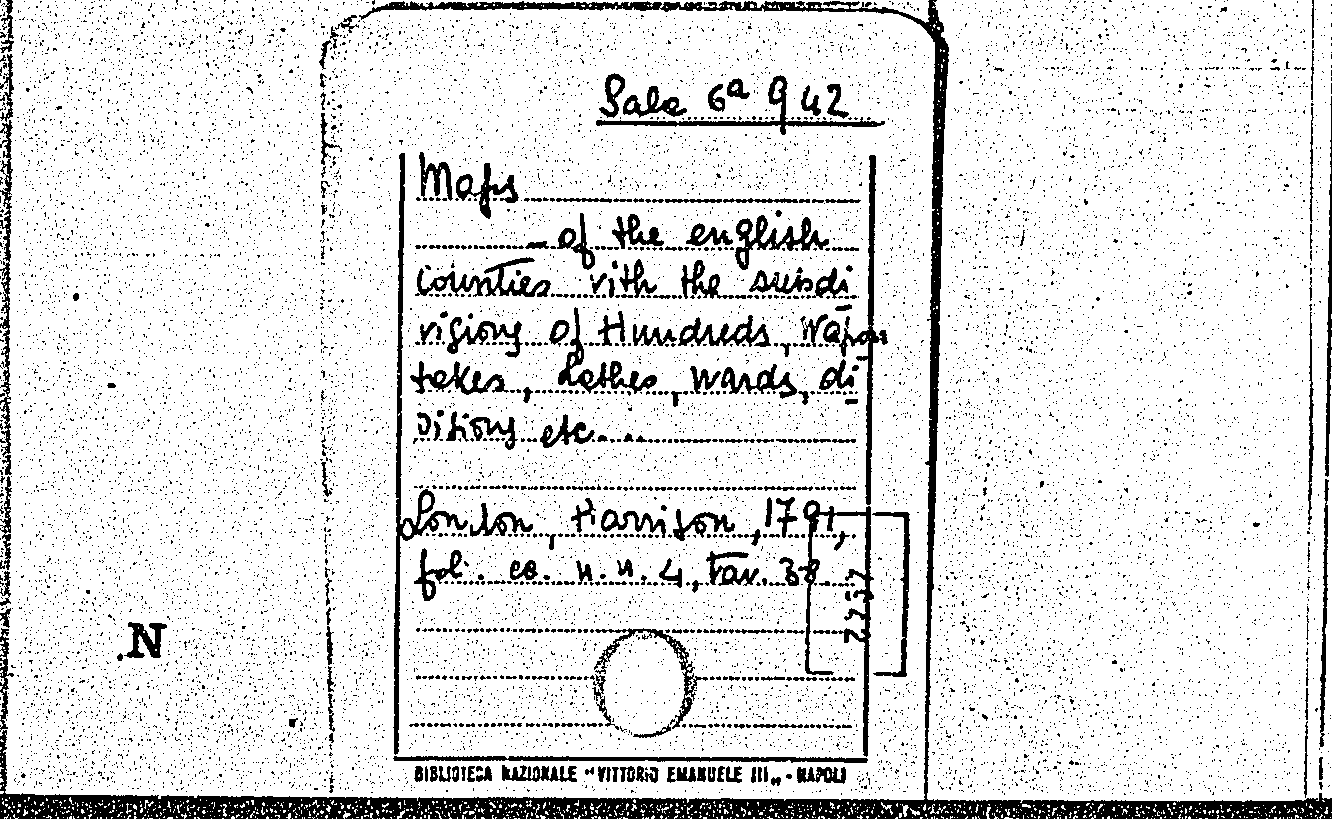 Sala 6ª G 42
Maps
- of the english
counties vith the subdi
visions of Hundreds, Wapon
takes, Lathes, wards, di
visions etc....
London, Harrison, 1791,
fol. cc. n.n. 4, Tav. 38
N
BIBLIOTECA NAZIONALE "VITTORIO EMANUELE III„ - NAPOLI